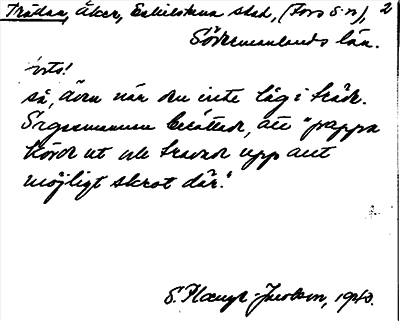 Trädan, Åker, Eskilstuna stad, (Fors s:n), 2
Södermanlands län.
orts!
så, även när den inte låg i träde.
Sagesmannen berättade, att "pappa
körde ut och travade upp allt
möjligt skrot där."
S. Plænge-Jacobson, 1940.